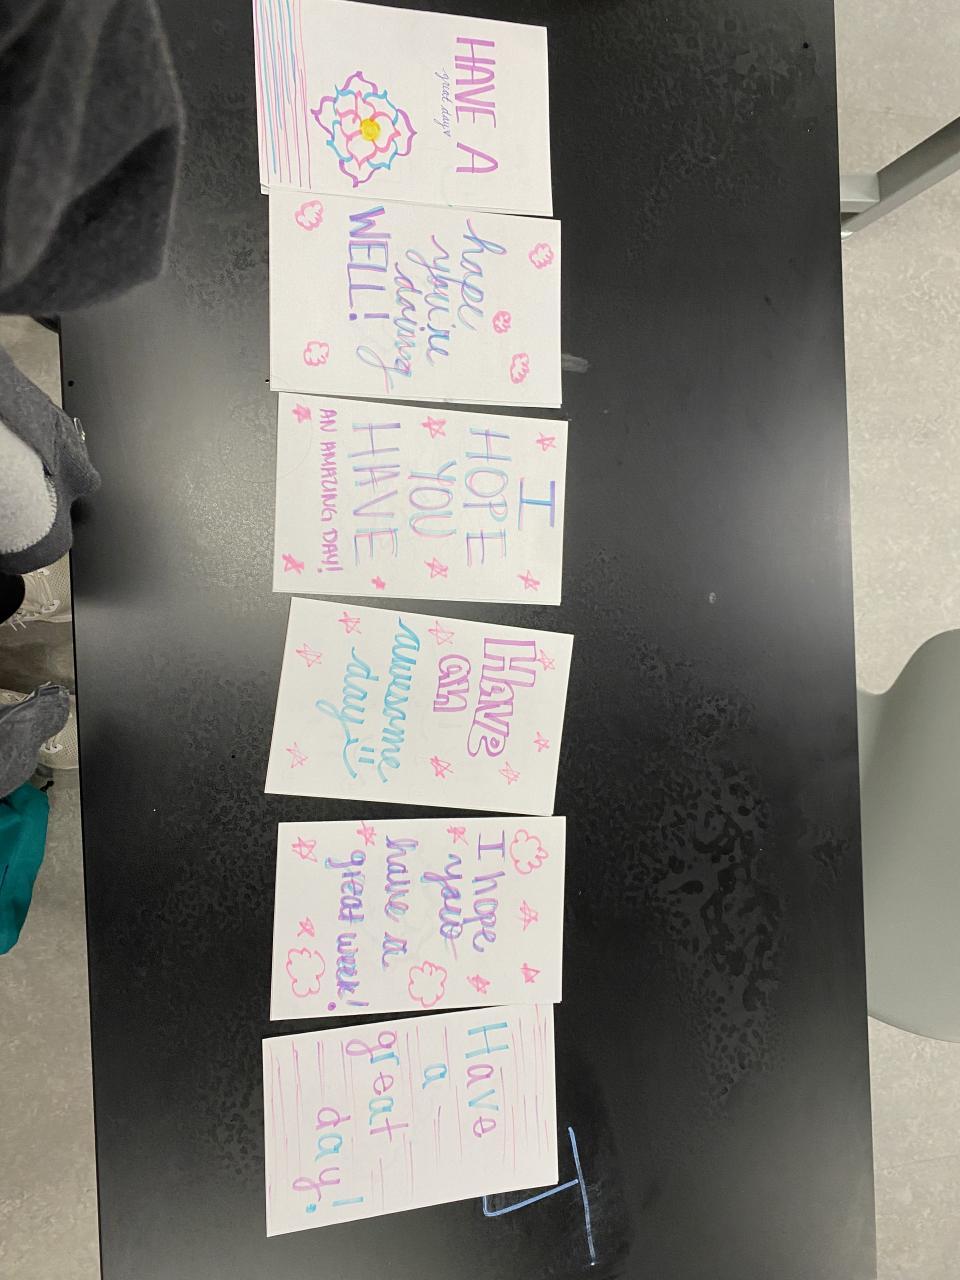 HAVE A
great day
hope
you're
doing
WELL!
I
HOPE
YOU
HAVE
AN AMAZING DAY!
Have
an
awesome
day
I hope
you
have a
great week!
Have
a
great
day!